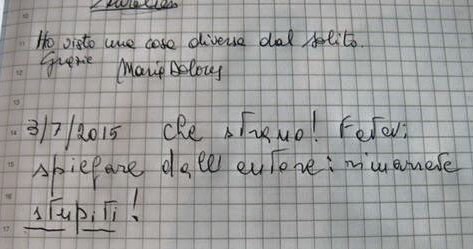 Ho visto una cosa diversa dal solito.
Grazie (Maria Dolores
3/7/2015 che strano! Fatevi
spiegare dall'autore: rimarrete
stupiti!